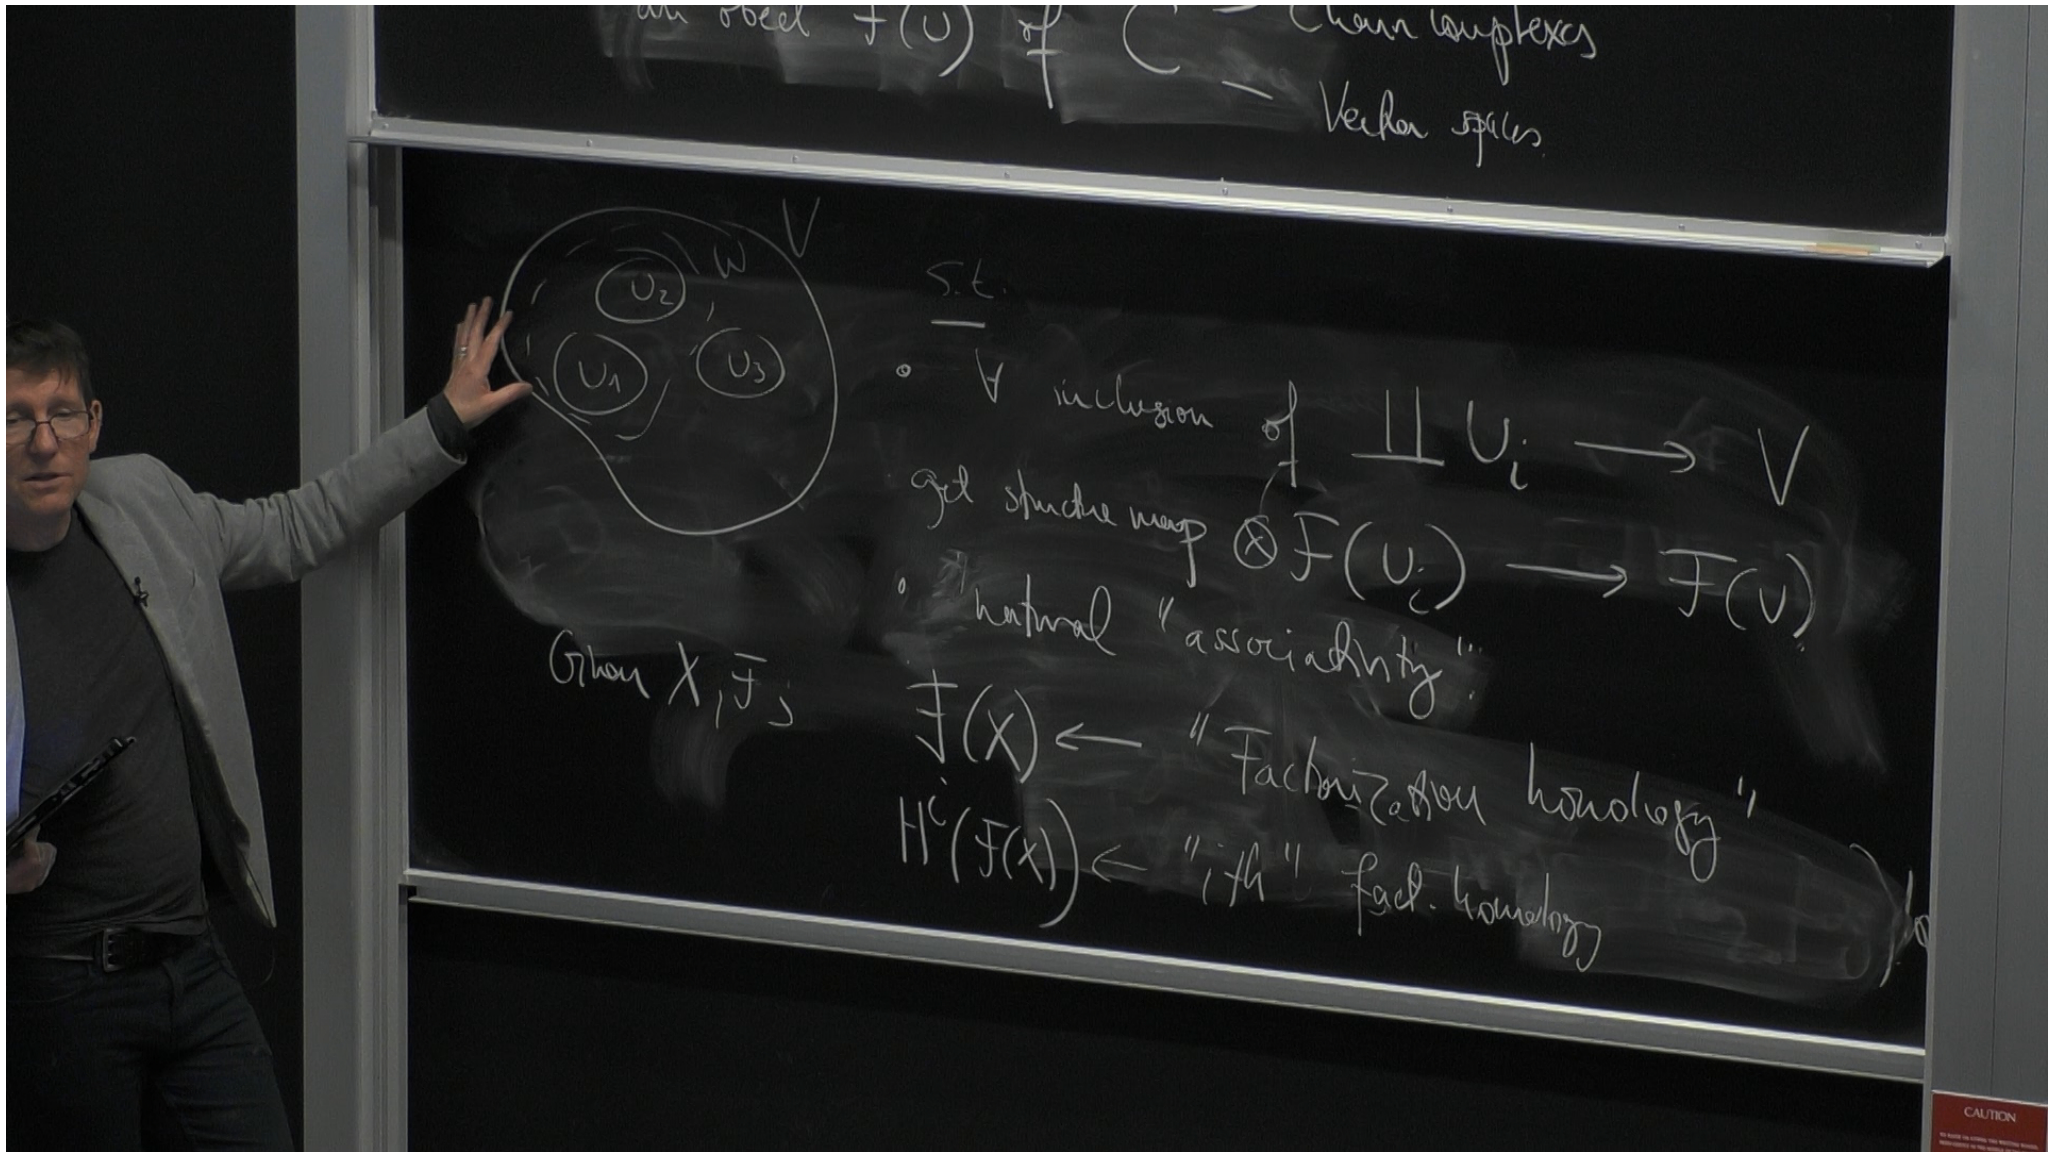 an object F(U) of C — Chain complexes
— Vector spaces.
V
W
U₂
U₁
U₃
s.t.
• ∀ inclusion of ∐ Uᵢ ⟶ V
get structure map ⊗ F(Uᵢ) ⟶ F(V)
• natural "associativity".
Given X, F;
F(X) ← "Factorization homology"
Hⁱ(F(X)) ← "i-th" fact. homology
CAUTION